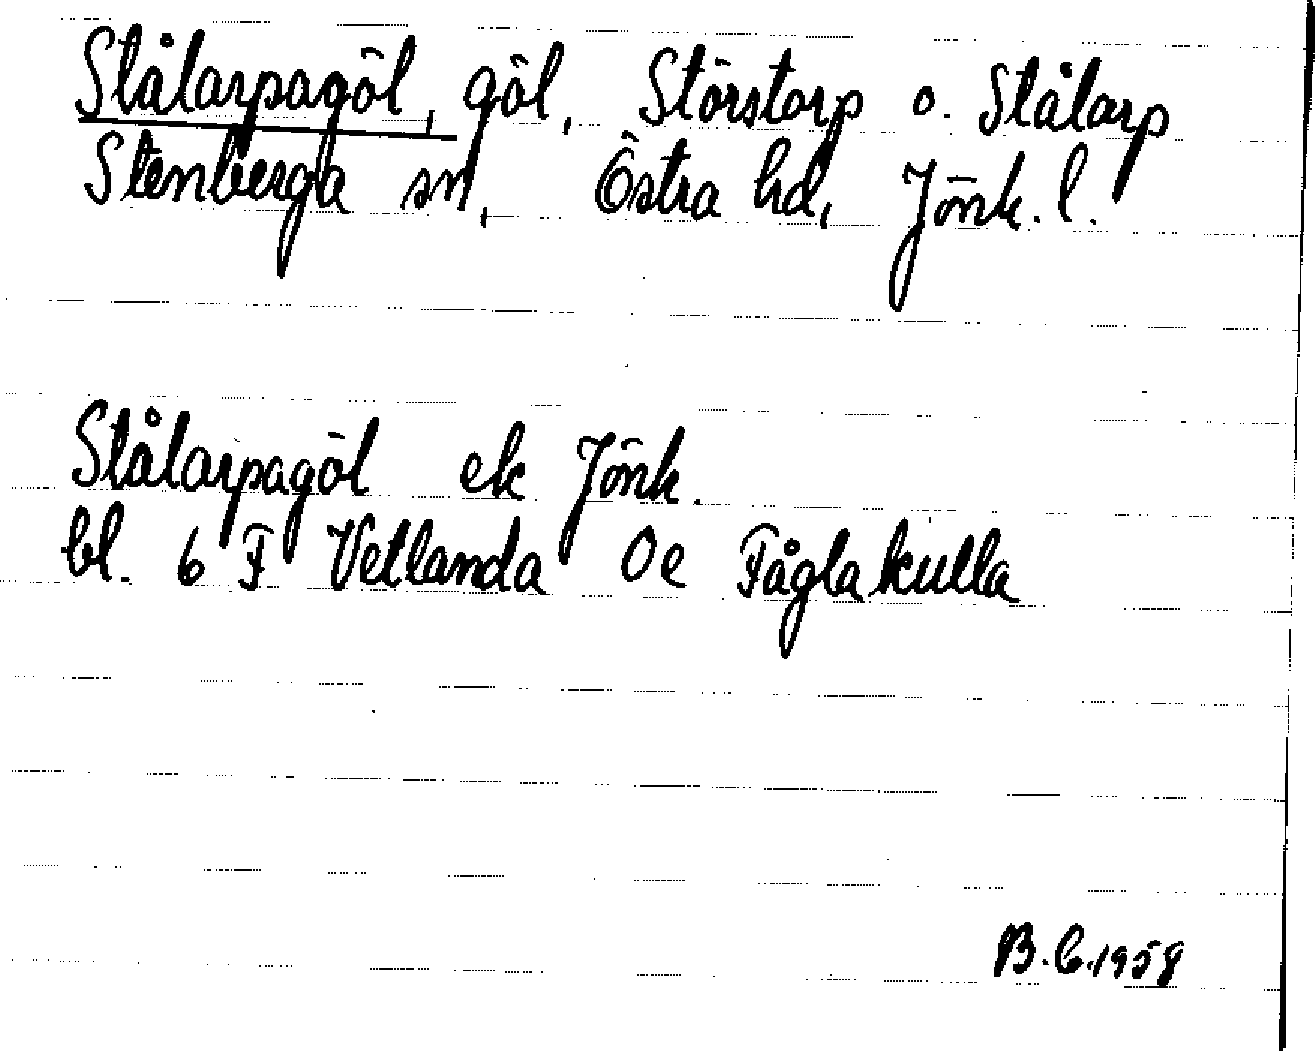 Stålarpagöl, göl, Störstorp o. Stålarp
Stenberga sn, Östra hd, Jönk. l.
Stålarpagöl ek Jönk.
bl. 6 F Vetlanda 0e Fåglakulla
B.C.1958